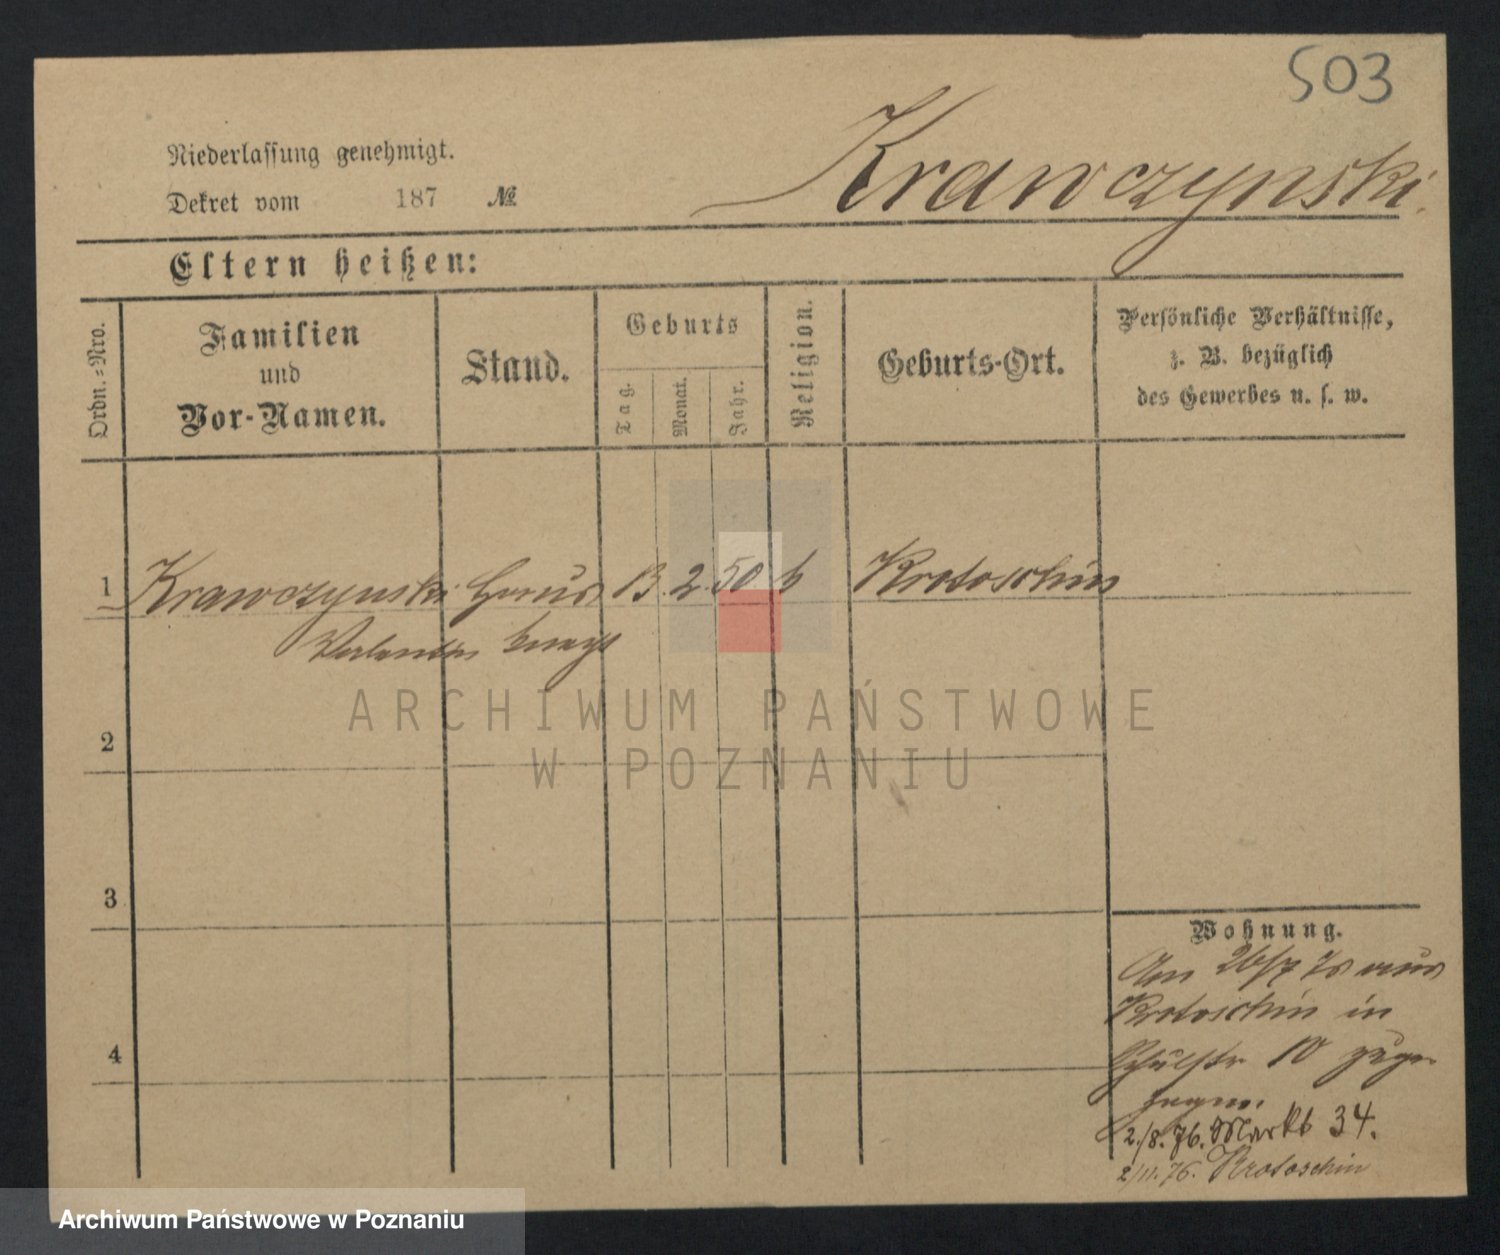 503
Niederlassung genehmigt.
Krawczynski.
Dekret vom 187 №
Eltern heißen:
Ordn.-Nro.
Familien
und
Vor-Namen.
Stand.
Geburts
Tag.
Monat.
Jahr.
Religion.
Geburts-Ort.
Persönliche Verhältnisse,
z. B. bezüglich
des Gewerbes u. s. w.
1 Krawczynski Haus 13. 2. 50. k Krotoschin
Valentin knecht
ARCHIWUM PAŃSTWOWE
W POZNANIU
2
3
Wohnung.
Am 26/7 76 aus
Krotoschin in
4
Schulstr 10 zuge
zogen.
2./8. 76. Markt 34.
2/11. 76. Krotoschin
Archiwum Państwowe w Poznaniu